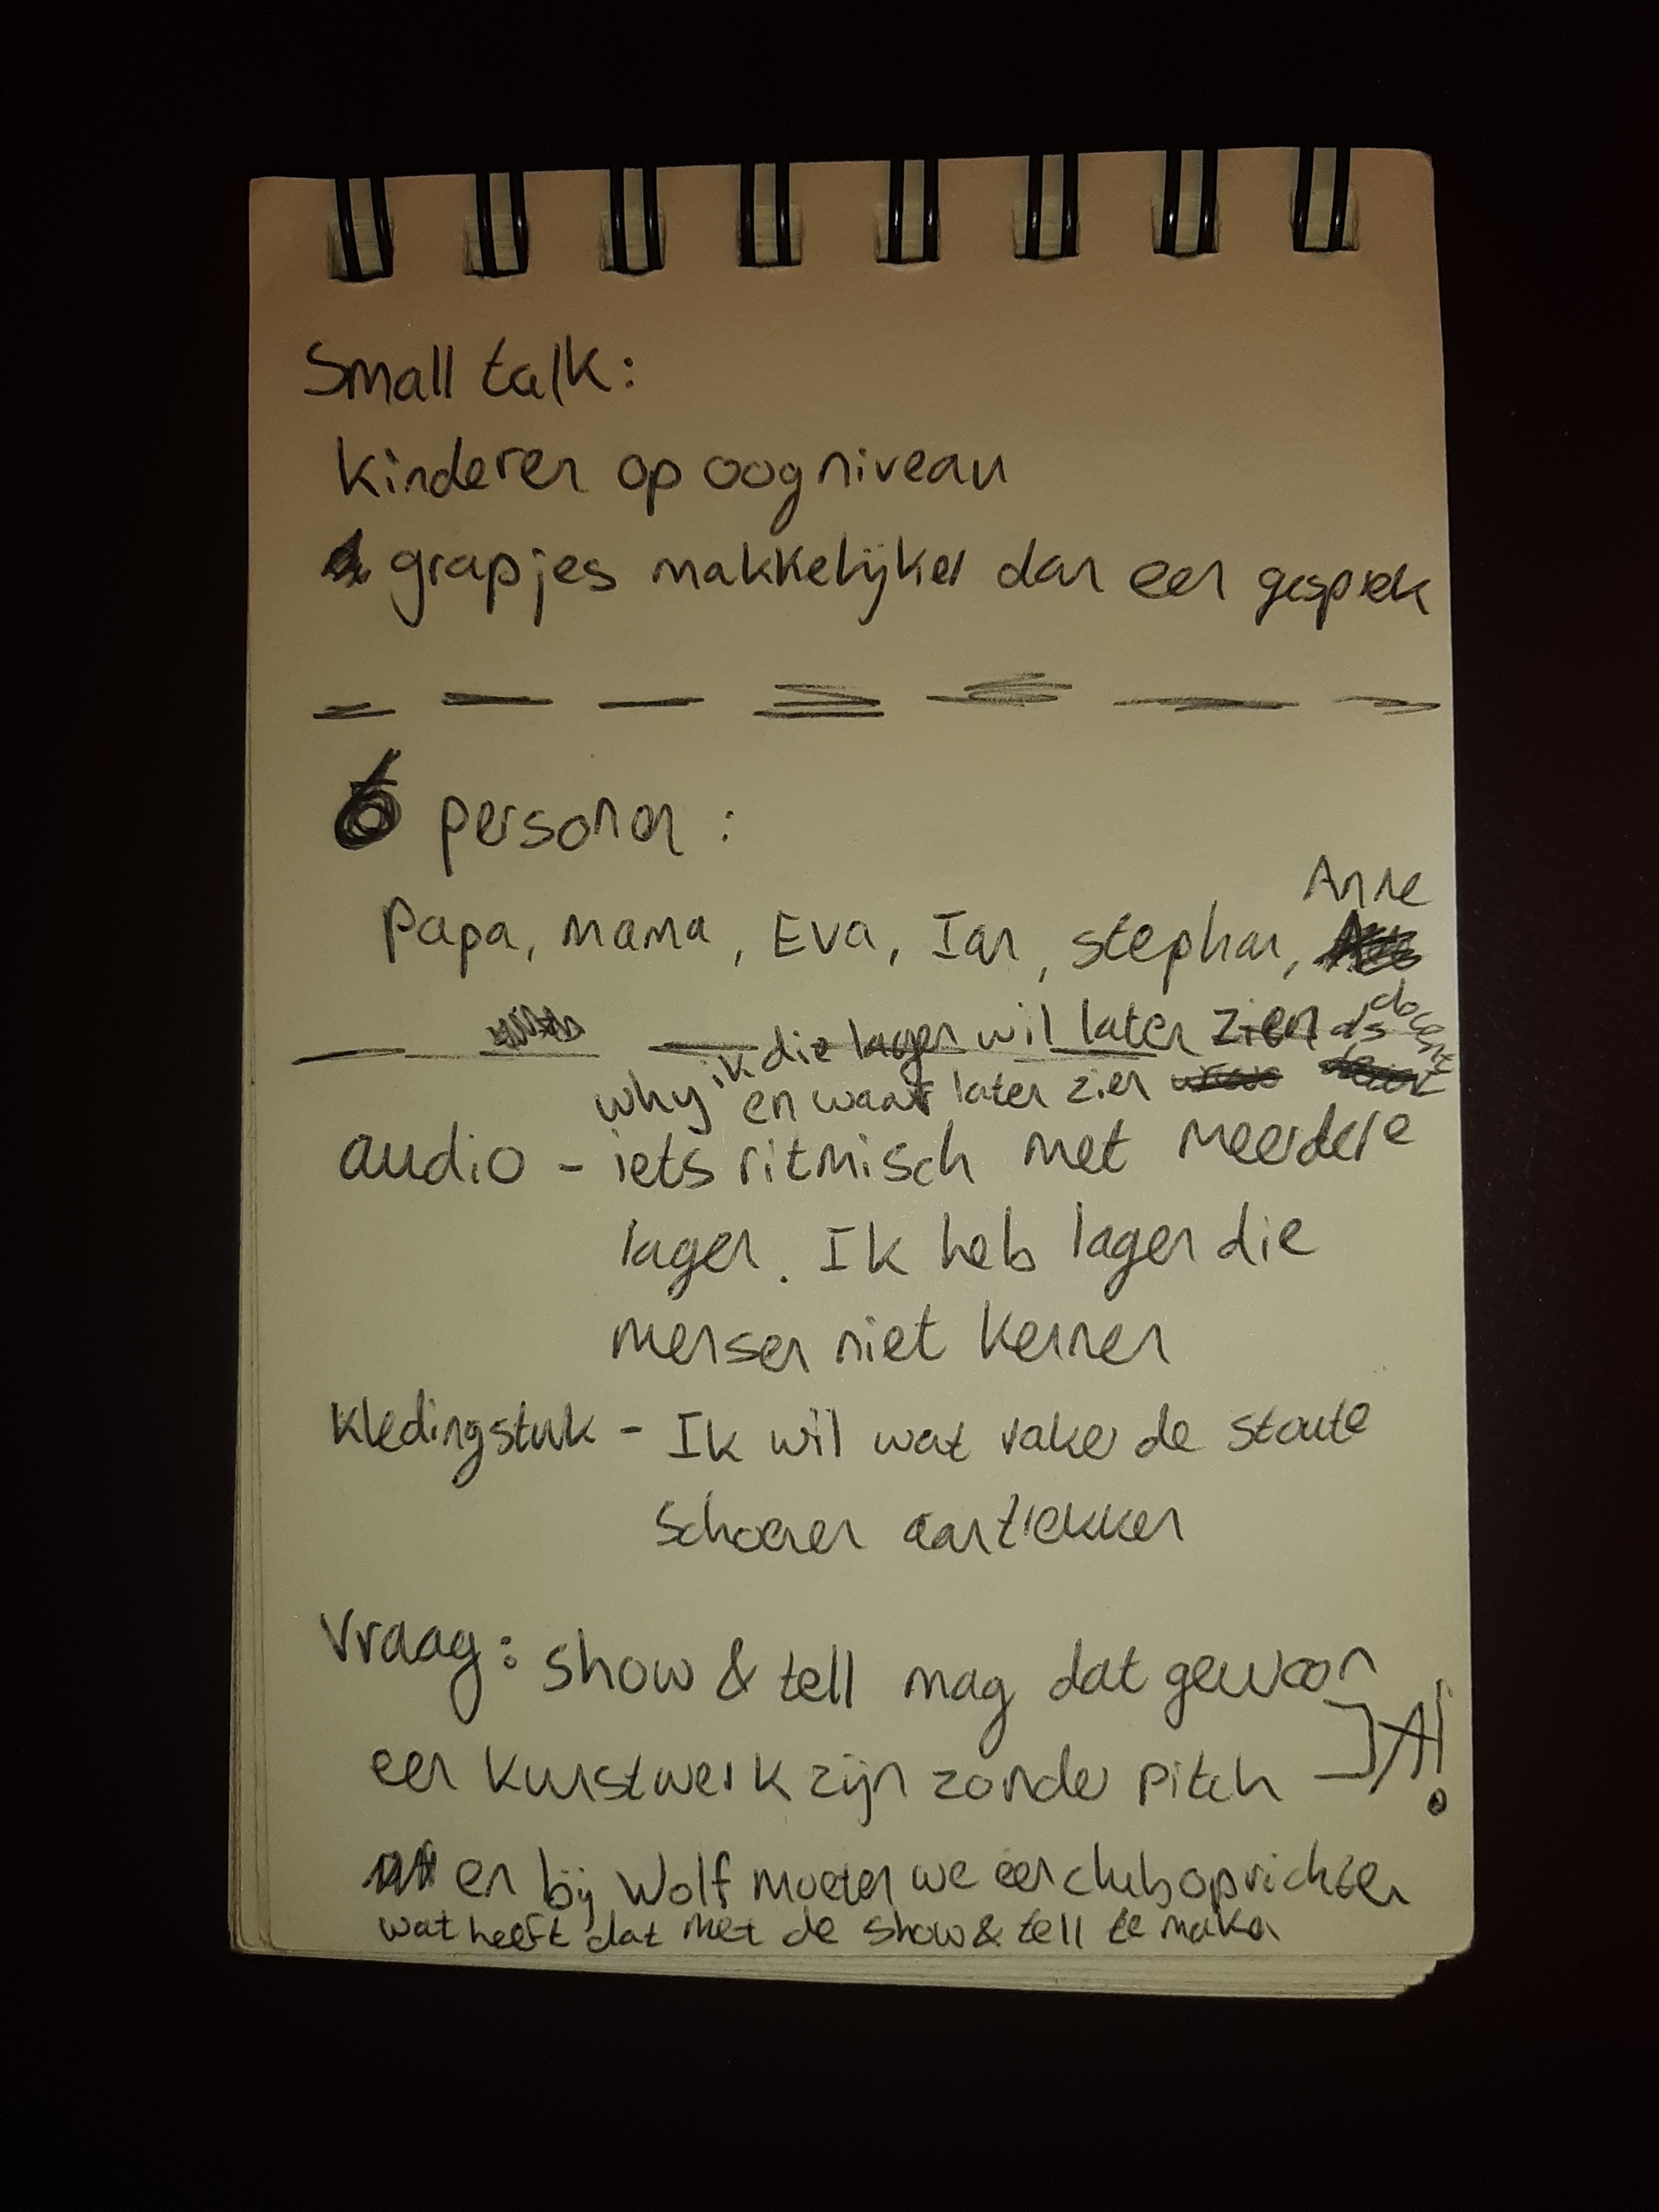 Small talk:
kinderen op oogniveau
grapjes makkelijker dan een gesprek
6 personen:
Anne
Papa, mama, Eva, Ian, stephan,
why ik die lagen wil laten zien als docent
en waar laten zien
audio - iets ritmisch met meerdere
lagen. Ik heb lagen die
mensen niet kennen
kledingstuk - Ik wil wat vaker de stoute
schoenen aantrekken
Vraag: show & tell mag dat gewoon
een kunstwerk zijn zonder pitch
A!
en bij Wolf moeten we een club oprichten
wat heeft dat met de show & tell te maken